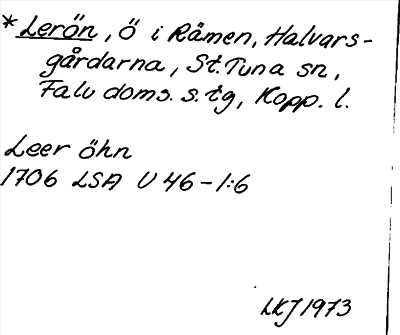 *Lerön, ö i Råmen, Halvars-
gårdarna, St. Tuna sn,
Falu doms. s. tg, Kopp. l.
Leer öhn
1706 LSA U 46-1:6
LKJ 1973